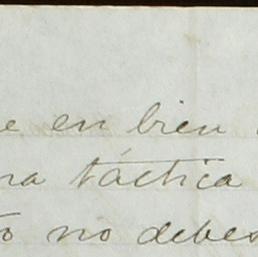 e en bien
na táctica
to no debes